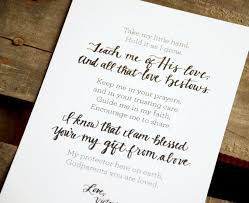 Take my little hand.
Hold it as I grow.
Teach me of His love,
And all that love Bestows.
Keep me in your prayers,
and in your trusting care.
Guide me in my faith,
Encourage me to share.
I know that I am Blessed
You're my gift from above.
My protector here on earth,
Godparents you are loved.
Love,